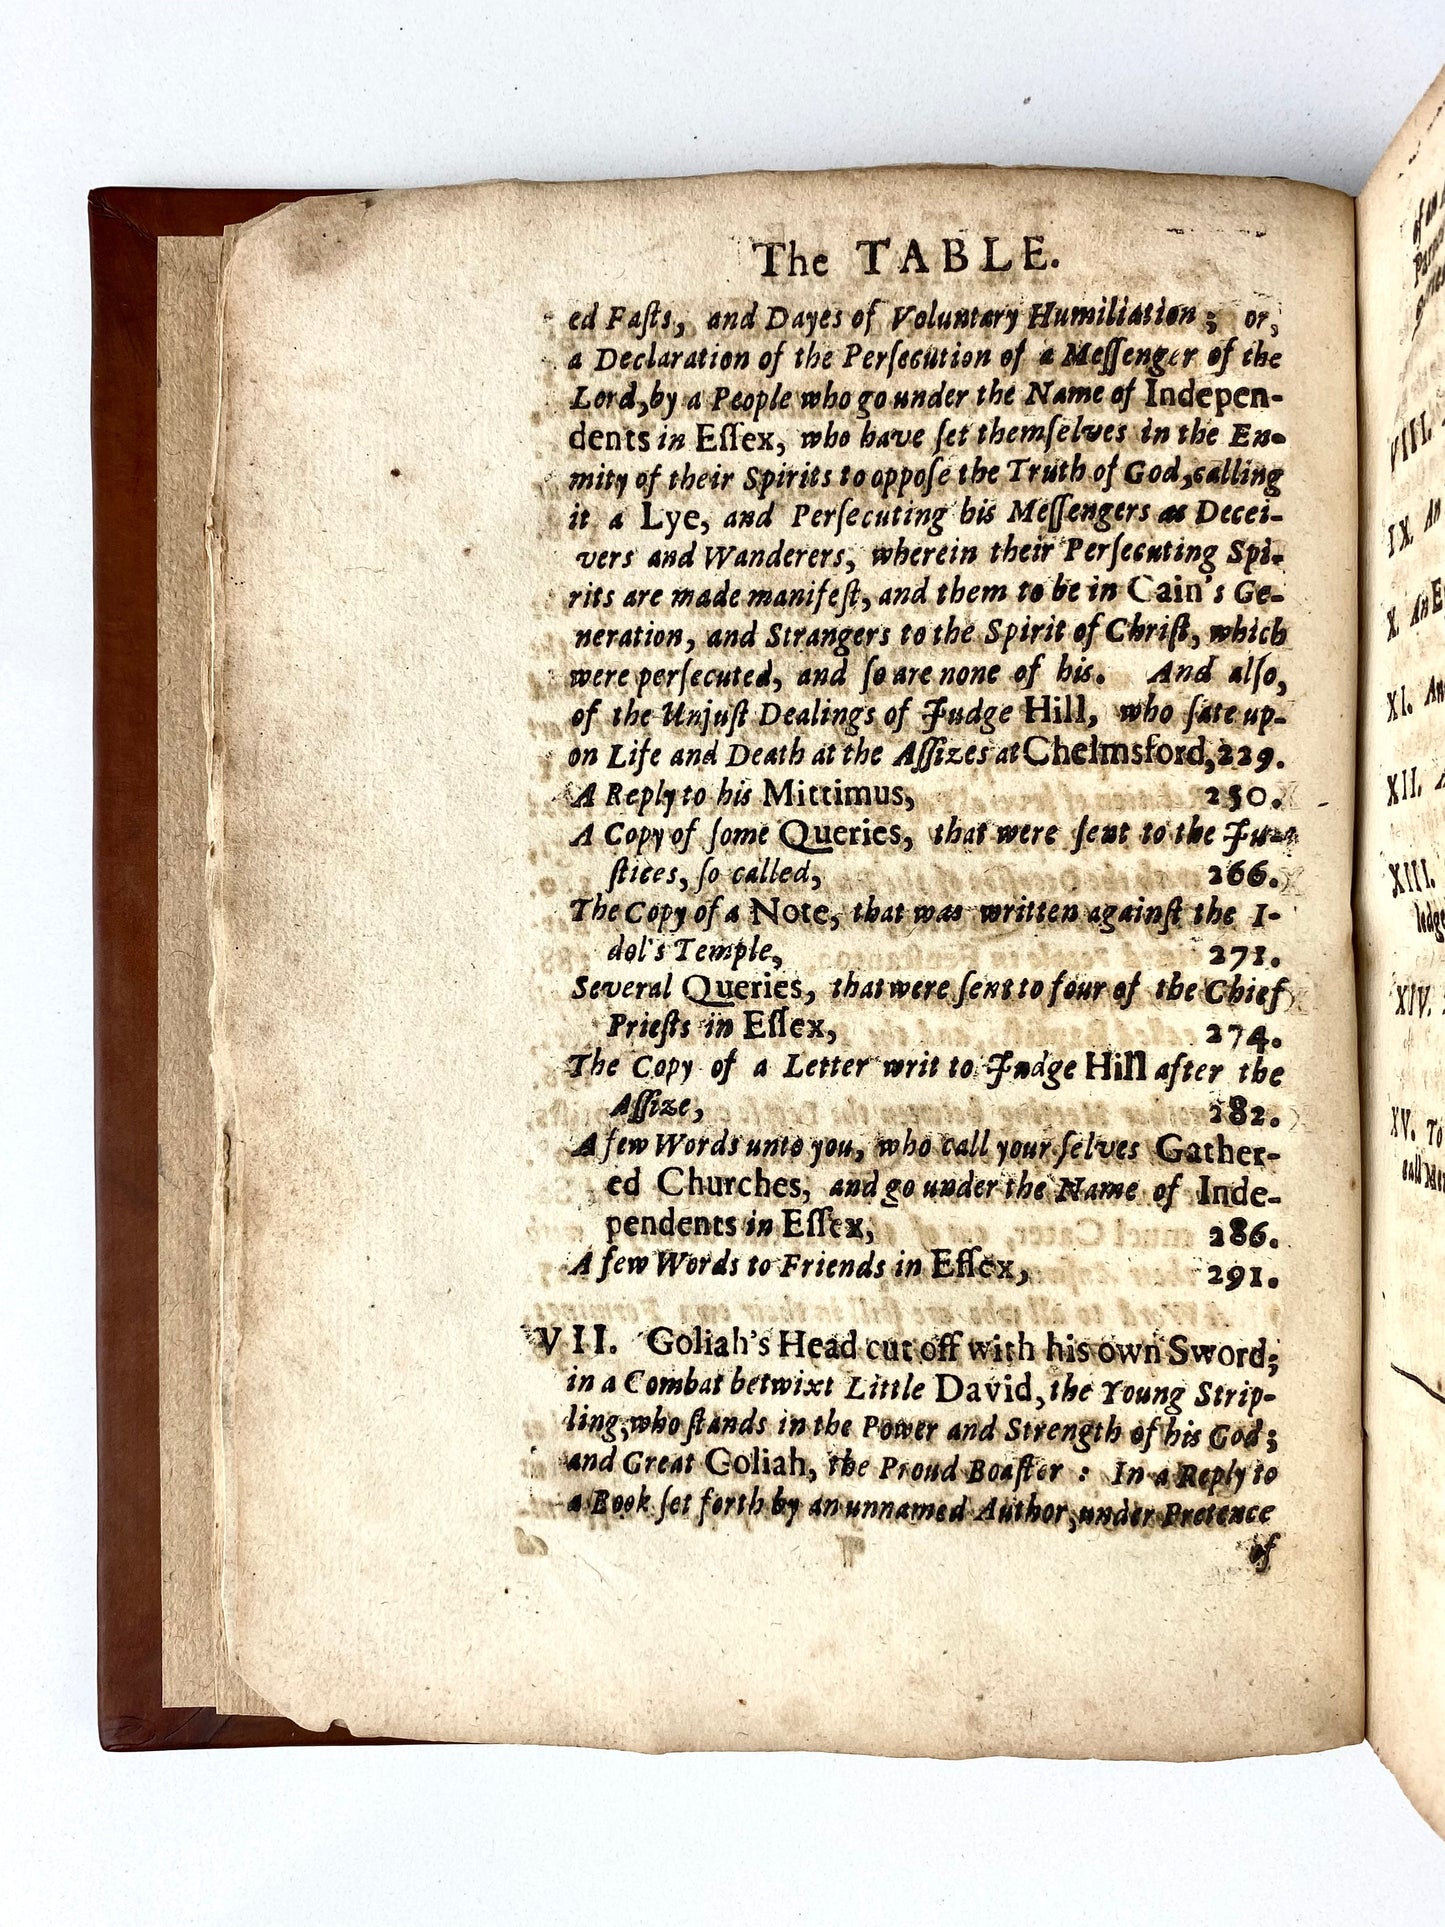 The TABLE.
ed Faſts, and Dayes of Voluntary Humiliation; or,
a Declaration of the Perſecution of a Meſſenger of the
Lord, by a People who go under the Name of Indepen-
dents in Eſſex, who have ſet themſelves in the En-
mity of their Spirits to oppoſe the Truth of God, calling
it a Lye, and Perſecuting his Meſſengers as Decei-
vers and Wanderers, wherein their Perſecuting Spi-
rits are made manifeſt, and them to be in Cain's Ge-
neration, and Strangers to the Spirit of Chriſt, which
were perſecuted, and ſo are none of his. And alſo,
of the Unjuſt Dealings of Judge Hill, who ſate up-
on Life and Death at the Aſſizes at Chelmsford, 229.
A Reply to his Mittimus, 250.
A Copy of ſome Queries, that were ſent to the Ju-
ſtices, ſo called, 266.
The Copy of a Note, that was written againſt the I-
dol's Temple, 271.
Several Queries, that were ſent to four of the Chief
Prieſts in Eſſex, 274.
The Copy of a Letter writ to Judge Hill after the
Aſſize, 282.
A few Words unto you, who call your ſelves Gather-
ed Churches, and go under the Name of Inde-
pendents in Eſſex, 286.
A few Words to Friends in Eſſex, 291.
VII. Goliah's Head cut off with his own Sword;
in a Combat betwixt Little David, the Young Strip-
ling, who ſtands in the Power and Strength of his God;
and Great Goliah, the Proud Boaſter: In a Reply to
a Book ſet forth by an unnamed Author, under Pretence
of
of an
VIII.
IX. An
X. An
XI.
XII.
XIII.
XIV.
XV. To